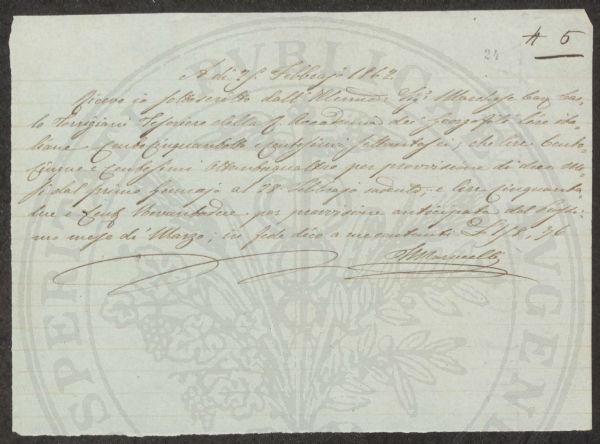 № 5
24
A dì 28 Febbrajo 1862
Ricevo io sottoscritto dall'Illmo Sigr Marchese Cav. Car-
lo Torrigiani Tesoriere della R. Accademia dei Georgofili lire ita-
liane Cento Cinquantotto e centesimi settantasei; che lire Cento
Cinque e Centesimi Ottantaquattro per provvisione di due me-
si dal primo Gennajo al 28 Febbrajo cadente e lire Cinquanta-
due e Cent. Novantadue per provvisione anticipata del prossi-
mo mese di Marzo; in fede dico a me contanti £ 158, 76
PUBLIC
SPERIT
AUGEN